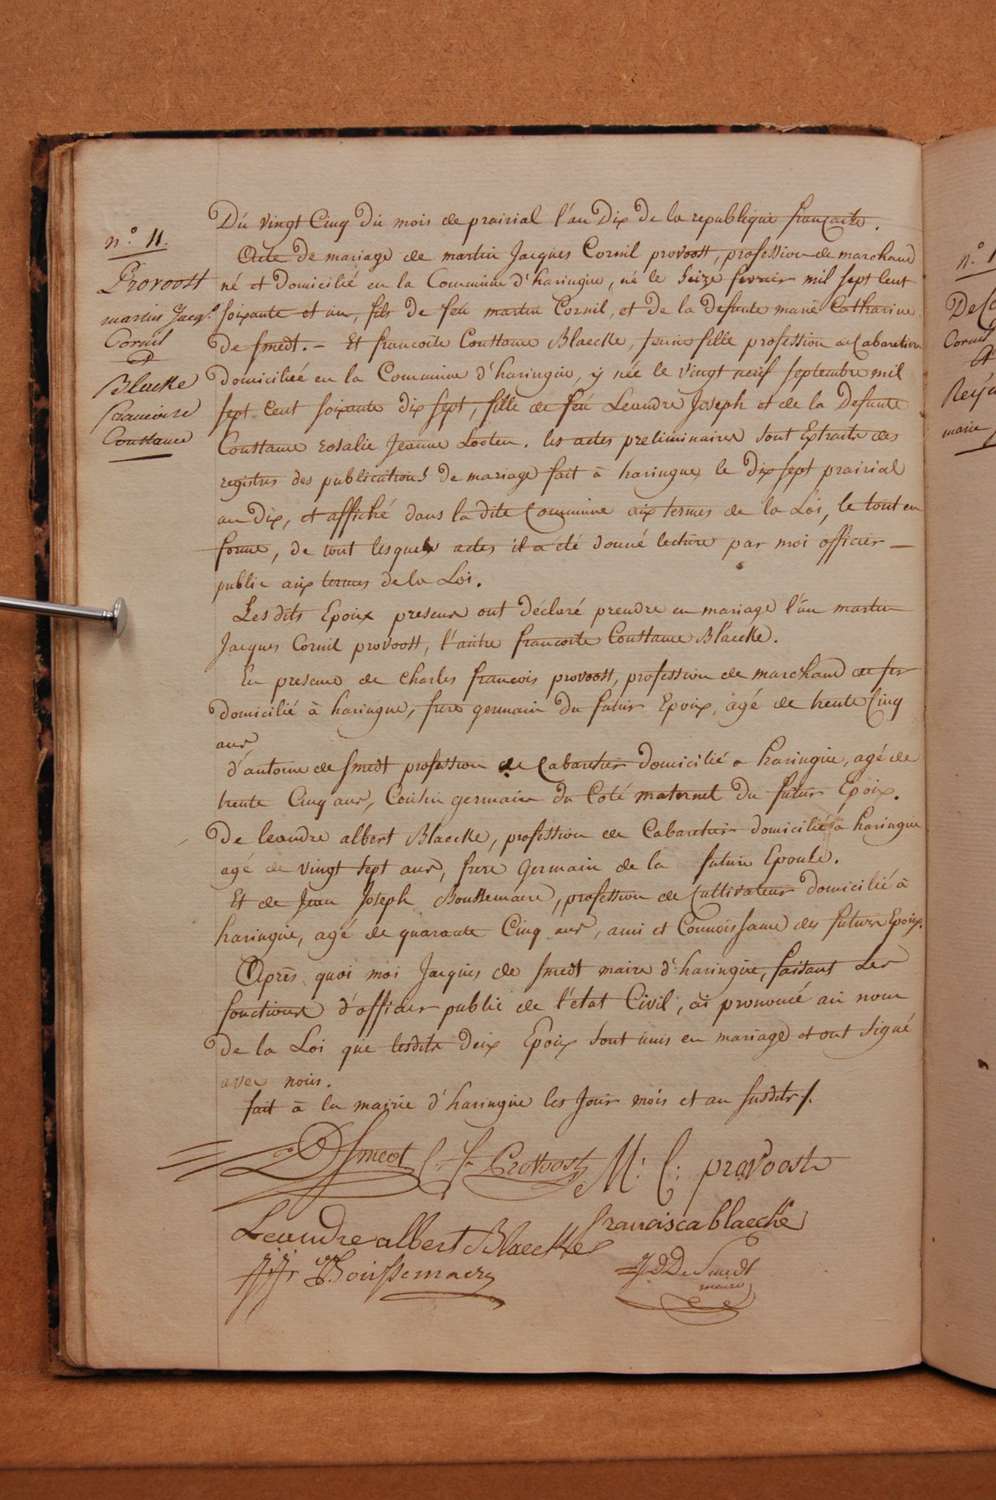 n.° 11.
Provoost
martin Jacq.s
Cornil
&
Blaeke
francoise
Constance
Du vingt Cinq du mois de prairial l'an Dix de la republique francaise.
Acte de mariage de martin Jacques Cornil provoost, profession de marchand
né et domicilié en la Commune d'haringue, né le Seize fevrier mil sept Cent
soixante et un, fils de feu martin Cornil, et de la defunte marie Catharine
de Smedt. — Et francoise Constance Blaecke, jeune fille profession de Cabaretiere
domiciliée en la Commune d'haringue, y née le vingt neuf septembre mil
sept Cent soixante dix sept, fille de feu Leandre Joseph et de la Defunte
Constance rosalie Jeanne Looten. les actes preliminaires sont Extraits des
registres des publications de mariage fait à haringue le dix sept prairial
an Dix, et affiché dans la dite Commune aux termes de la Loi, le tout en
forme, de tout lesquels actes il a été donné lecture par moi officier —
public aux termes de la Loi.
Les dits Epoux presens ont déclaré prendre en mariage l'un martin
Jacques Cornil provoost, l'autre francoise Constance Blaecke.
En presence de Charles francois provoost, profession de marchand de fer
domicilié à haringue, frere germain du futur Epoux, âgé de trente Cinq
ans
d'antoine de Smedt profession de Cabaretier domicilié a haringue, agé de
trente Cinq ans, Cousin germain du Coté maternel du futur Epoux.
De leandre albert Blaecke, profession de Cabaretier domicilié à haringue
agé de vingt sept ans, frere Germain de la future Epouse.
Et de Jean Joseph Boussemaere, profession de Cultivateur domicilié à
haringue, agé de quarante Cinq ans, ami et Connoissance des futurs Epoux.
Après quoi moi Jacques de Smedt maire d'haringue, faisant les
fonctions d'officier public de l'état Civil, ai prononcé au nom
de la Loi que lesdits deux Epoux sont unis en mariage et ont signé
avec nous.
fait à la mairie d'haringue les Jour mois et an susdits /.
DSmedt C. F. Provoost M: C: provoost
Leandre albert Blaecke francisca blaecke
JJ: Boussemaere J D De Smedt
maire
n.° 1
DeCo
Cornil
&
Reij
marie